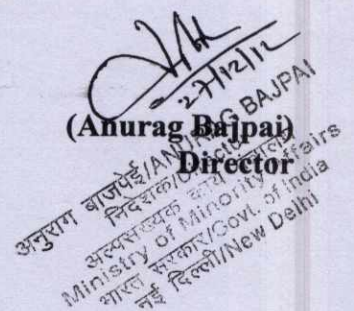 27/12/12
(Anurag Bajpai)
Director
अनुराग बाजपेई/ANURAG BAJPAI
निदेशक/Director
अल्पसंख्यक कार्य मंत्रालय
Ministry of Minority Affairs
भारत सरकार/Govt. of India
नई दिल्ली/New Delhi